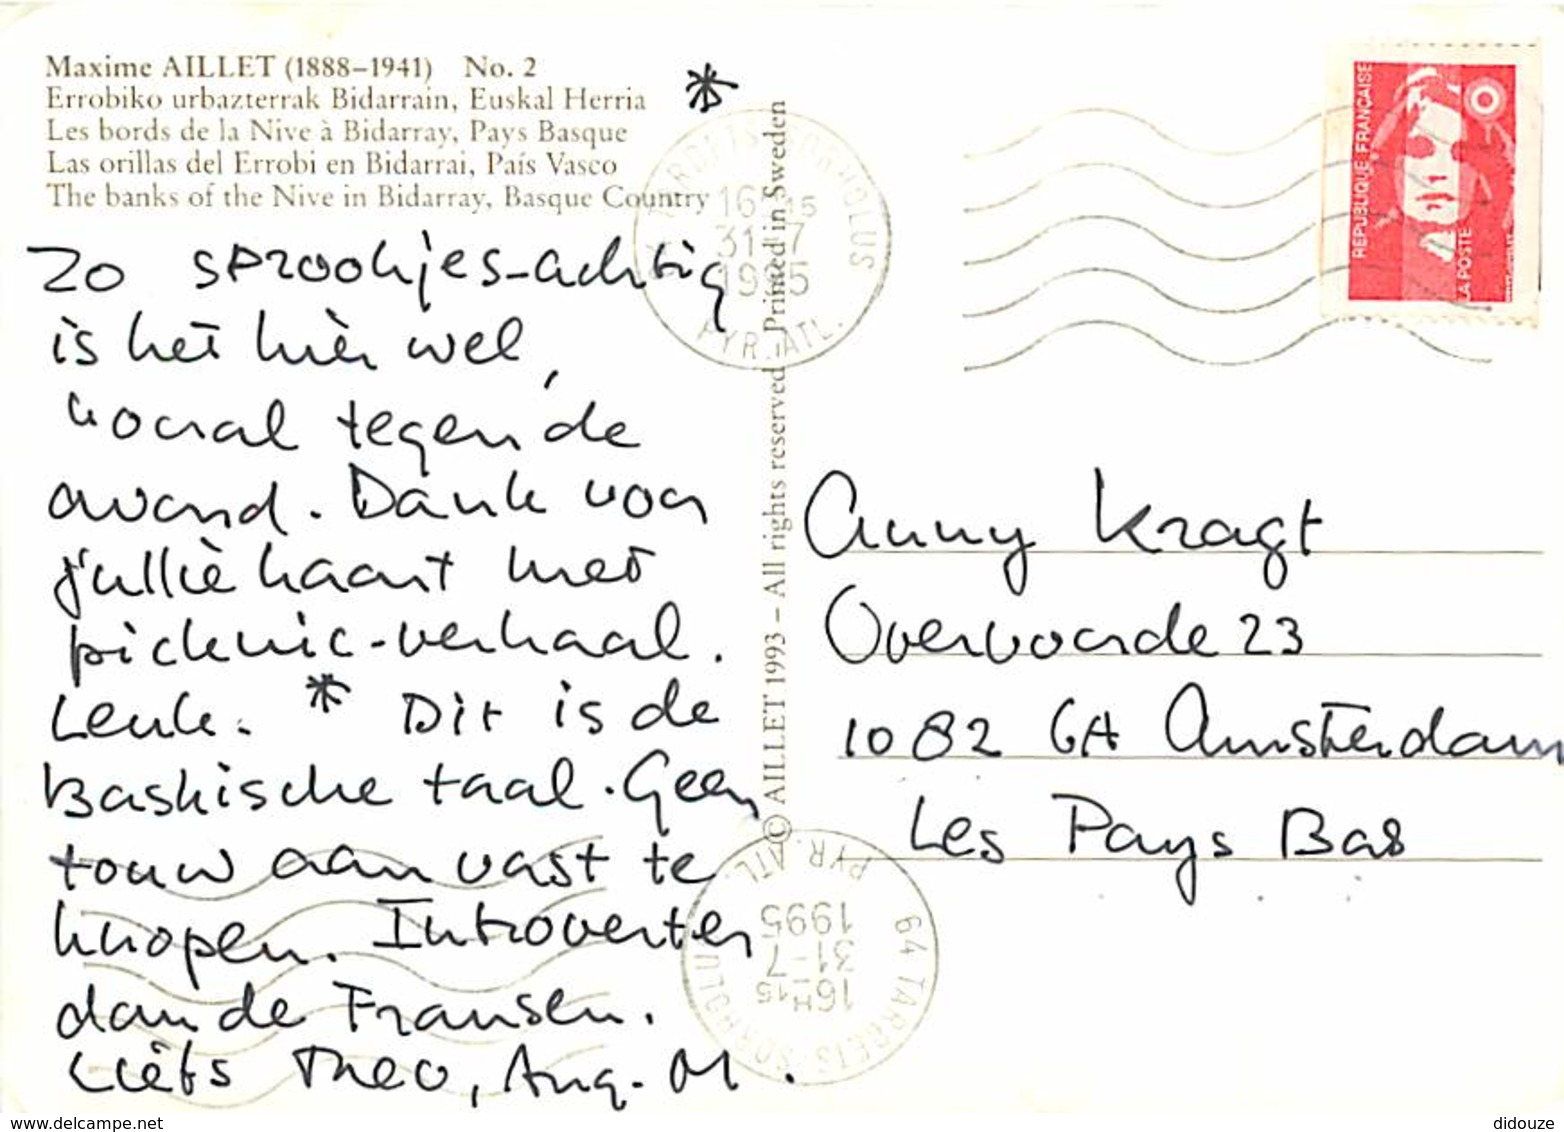 Maxime AILLET (1888–1941) No. 2
Errobiko urbazterrak Bidarrain, Euskal Herria
Les bords de la Nive à Bidarray, Pays Basque
Las orillas del Errobi en Bidarrai, País Vasco
The banks of the Nive in Bidarray, Basque Country
*
Zo sprookjes-achtig
is het hier wel,
vooral tegen de
avond. Dank voor
jullie kaart met
picknic-verhaal.
Leuk. * Dit is de
Baskische taal. Geen
touw aan vast te
knopen. Introverter
dan de Fransen.
Liefs Theo, Aug. M.
64 TARDETS-SORHOLUS
16H15
31-7
1995
PYR. ATL.
© AILLET 1993 – All rights reserved Printed in Sweden
REPUBLIQUE FRANÇAISE
LA POSTE
Anny Kragt
Overvoorde 23
1082 GA Amsterdam
Les Pays Bas
64 TARDETS-SORHOLUS
16H15
31-7
1995
PYR. ATL.
www.delcampe.net
didouze